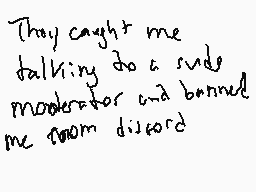 They caught me
talking to a rude
moderator and banned
me from discord